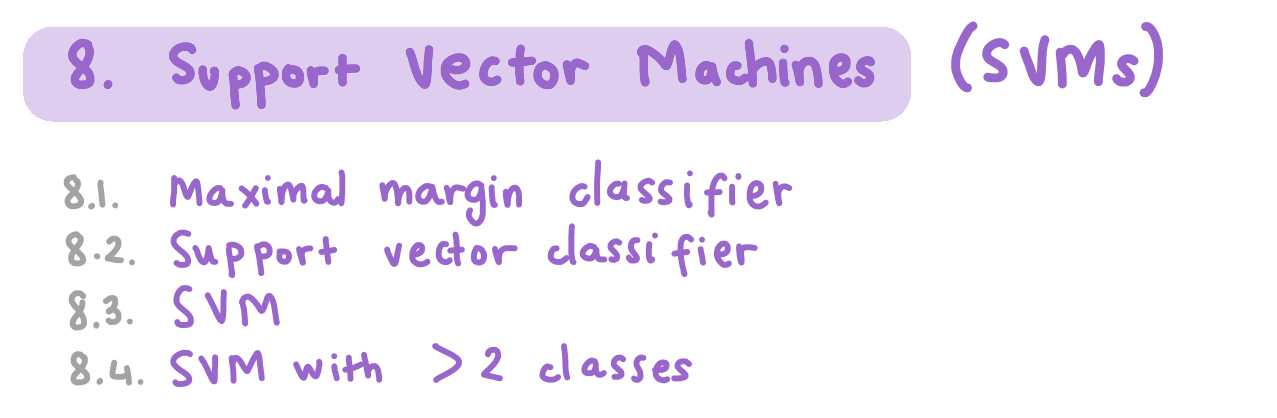 8. Support Vector Machines (SVMs)
8.1. Maximal margin classifier
8.2. Support vector classifier
8.3. SVM
8.4. SVM with > 2 classes